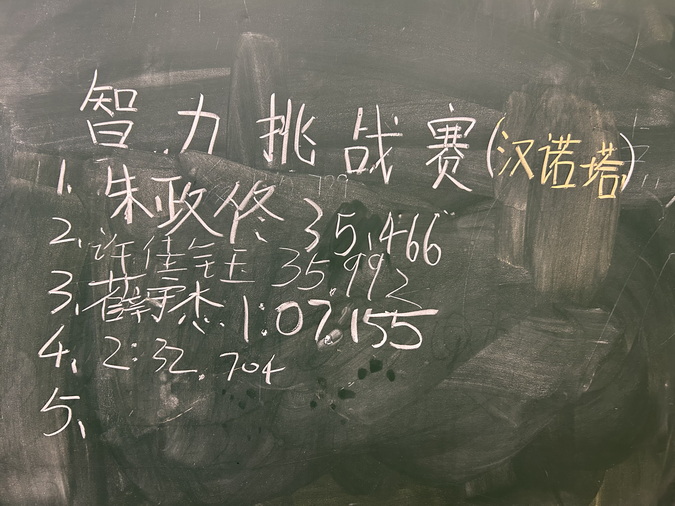 智力挑战赛(汉诺塔)
1、朱政佟 35.466"
2、许佳钰 35.992
3、薛宇杰 1:07.155
4、2:32.704
5、